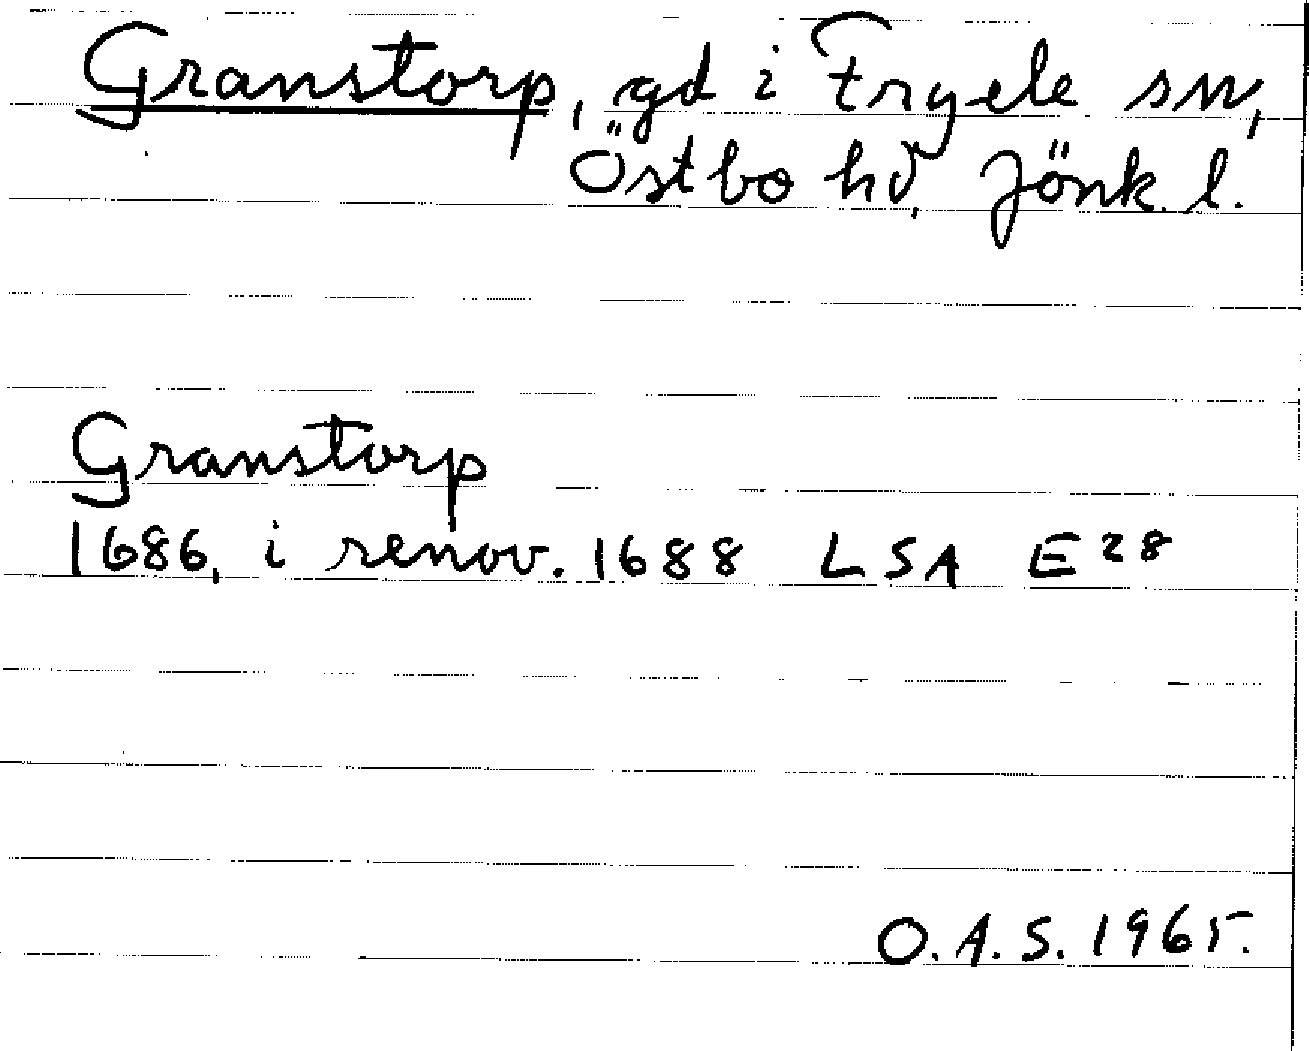 Granstorp, gd i Fryele sn,
Östbo hd, Jönk. l.
Granstorp
1686, i renov. 1688 LSA E28
O.A.S. 1965.